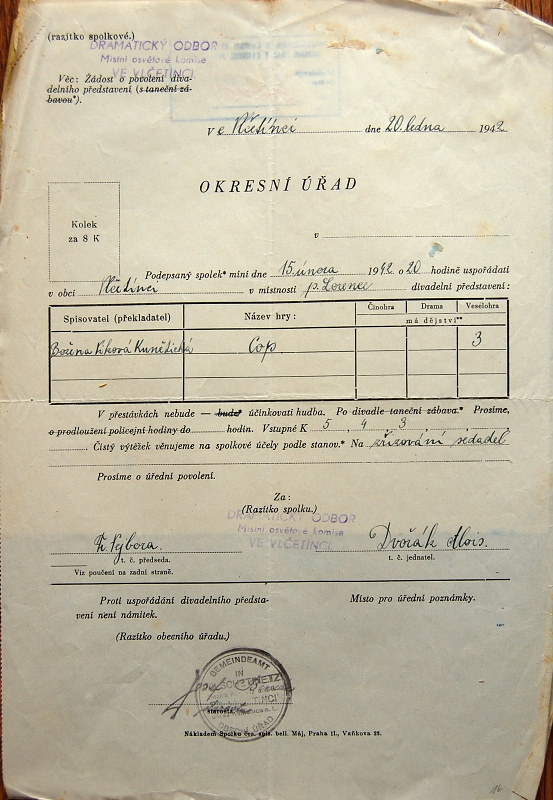 (razítko spolkové.)
DRAMATICKÝ ODBOR
Místní osvětové komise
VE VLČETÍNCI
Věc: Žádost o povolení diva-
delního představení (s taneční zá-
bavou*).
V e Vlčetínci dne 20. ledna 1942
OKRESNÍ ÚŘAD
Kolek
za 8 K
v
Podepsaný spolek* míní dne 15. února 1942 o 20 hodině uspořádati
v obci Vlčetínci v místnosti p. Lorence divadelní představení:
Spisovatel (překladatel) Název hry: Činohra Drama Veselohra
má dějství**
Božena Viková Kunětická Cop. 3
V přestávkách nebude — bude* účinkovati hudba. Po divadle taneční zábava.* Prosíme,
o prodloužení policejní hodiny do hodin. Vstupné K 5, 4, 3
Čistý výtěžek věnujeme na spolkové účely podle stanov.* Na zřizování sedadel
Prosíme o úřední povolení.
Za:
(Razítko spolku.)
DRAMATICKÝ ODBOR
Místní osvětové komise
VE VLČETÍNCI
Fr. Výbora. Dvořák Alois.
t. č. předseda. t. č. jednatel.
Viz poučení na zadní straně.
Proti uspořádání divadelního předsta-
vení není námitek.
Místo pro úřední poznámky.
(Razítko obecního úřadu.)
GEMEINDEAMT
IN
OBECNÍ ÚŘAD
starosta.
Nákladem Spolku čes. spis. bell. Máj, Praha II., Vaňkova 28.
16